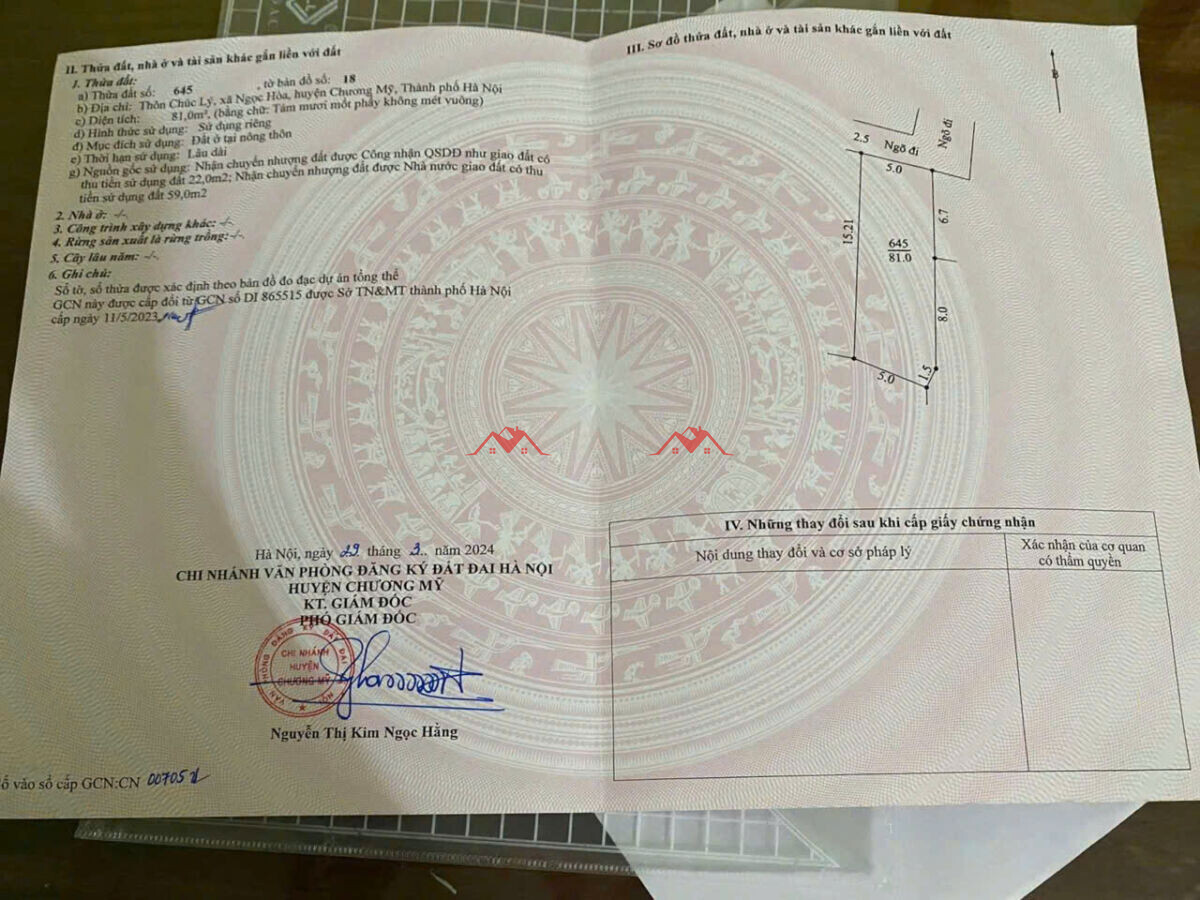 II. Thửa đất, nhà ở và tài sản khác gắn liền với đất
1. Thửa đất:
a) Thửa đất số: 645 , tờ bản đồ số: 18
b) Địa chỉ: Thôn Chúc Lý, xã Ngọc Hòa, huyện Chương Mỹ, Thành phố Hà Nội
c) Diện tích: 81,0m², (bằng chữ: Tám mươi mốt phẩy không mét vuông)
d) Hình thức sử dụng: Sử dụng riêng
đ) Mục đích sử dụng: Đất ở tại nông thôn
e) Thời hạn sử dụng: Lâu dài
g) Nguồn gốc sử dụng: Nhận chuyển nhượng đất được Công nhận QSDĐ như giao đất có
thu tiền sử dụng đất 22,0m2; Nhận chuyển nhượng đất được Nhà nước giao đất có thu
tiền sử dụng đất 59,0m2
2. Nhà ở: -/-
3. Công trình xây dựng khác: -/-
4. Rừng sản xuất là rừng trồng: -/-
5. Cây lâu năm: -/-
6. Ghi chú:
Số tờ, số thửa được xác định theo bản đồ đo đạc dự án tổng thể
GCN này được cấp đổi từ GCN số DI 865515 được Sở TN&MT thành phố Hà Nội
cấp ngày 11/5/2023
Hà Nội, ngày 29 tháng 3.. năm 2024
CHI NHÁNH VĂN PHÒNG ĐĂNG KÝ ĐẤT ĐAI HÀ NỘI
HUYỆN CHƯƠNG MỸ
KT. GIÁM ĐỐC
PHÓ GIÁM ĐỐC
VĂN PHÒNG ĐĂNG KÝ ĐẤT ĐAI
CHI NHÁNH
HUYỆN
CHƯƠNG MỸ
Nguyễn Thị Kim Ngọc Hằng
ố vào sổ cấp GCN:CN 00705
III. Sơ đồ thửa đất, nhà ở và tài sản khác gắn liền với đất
B
2.5 Ngõ đi
Ngõ đi
5.0
15.21
6.7
645
81.0
8.0
5.0
1.5
IV. Những thay đổi sau khi cấp giấy chứng nhận
Nội dung thay đổi và cơ sở pháp lý
Xác nhận của cơ quan
có thẩm quyền